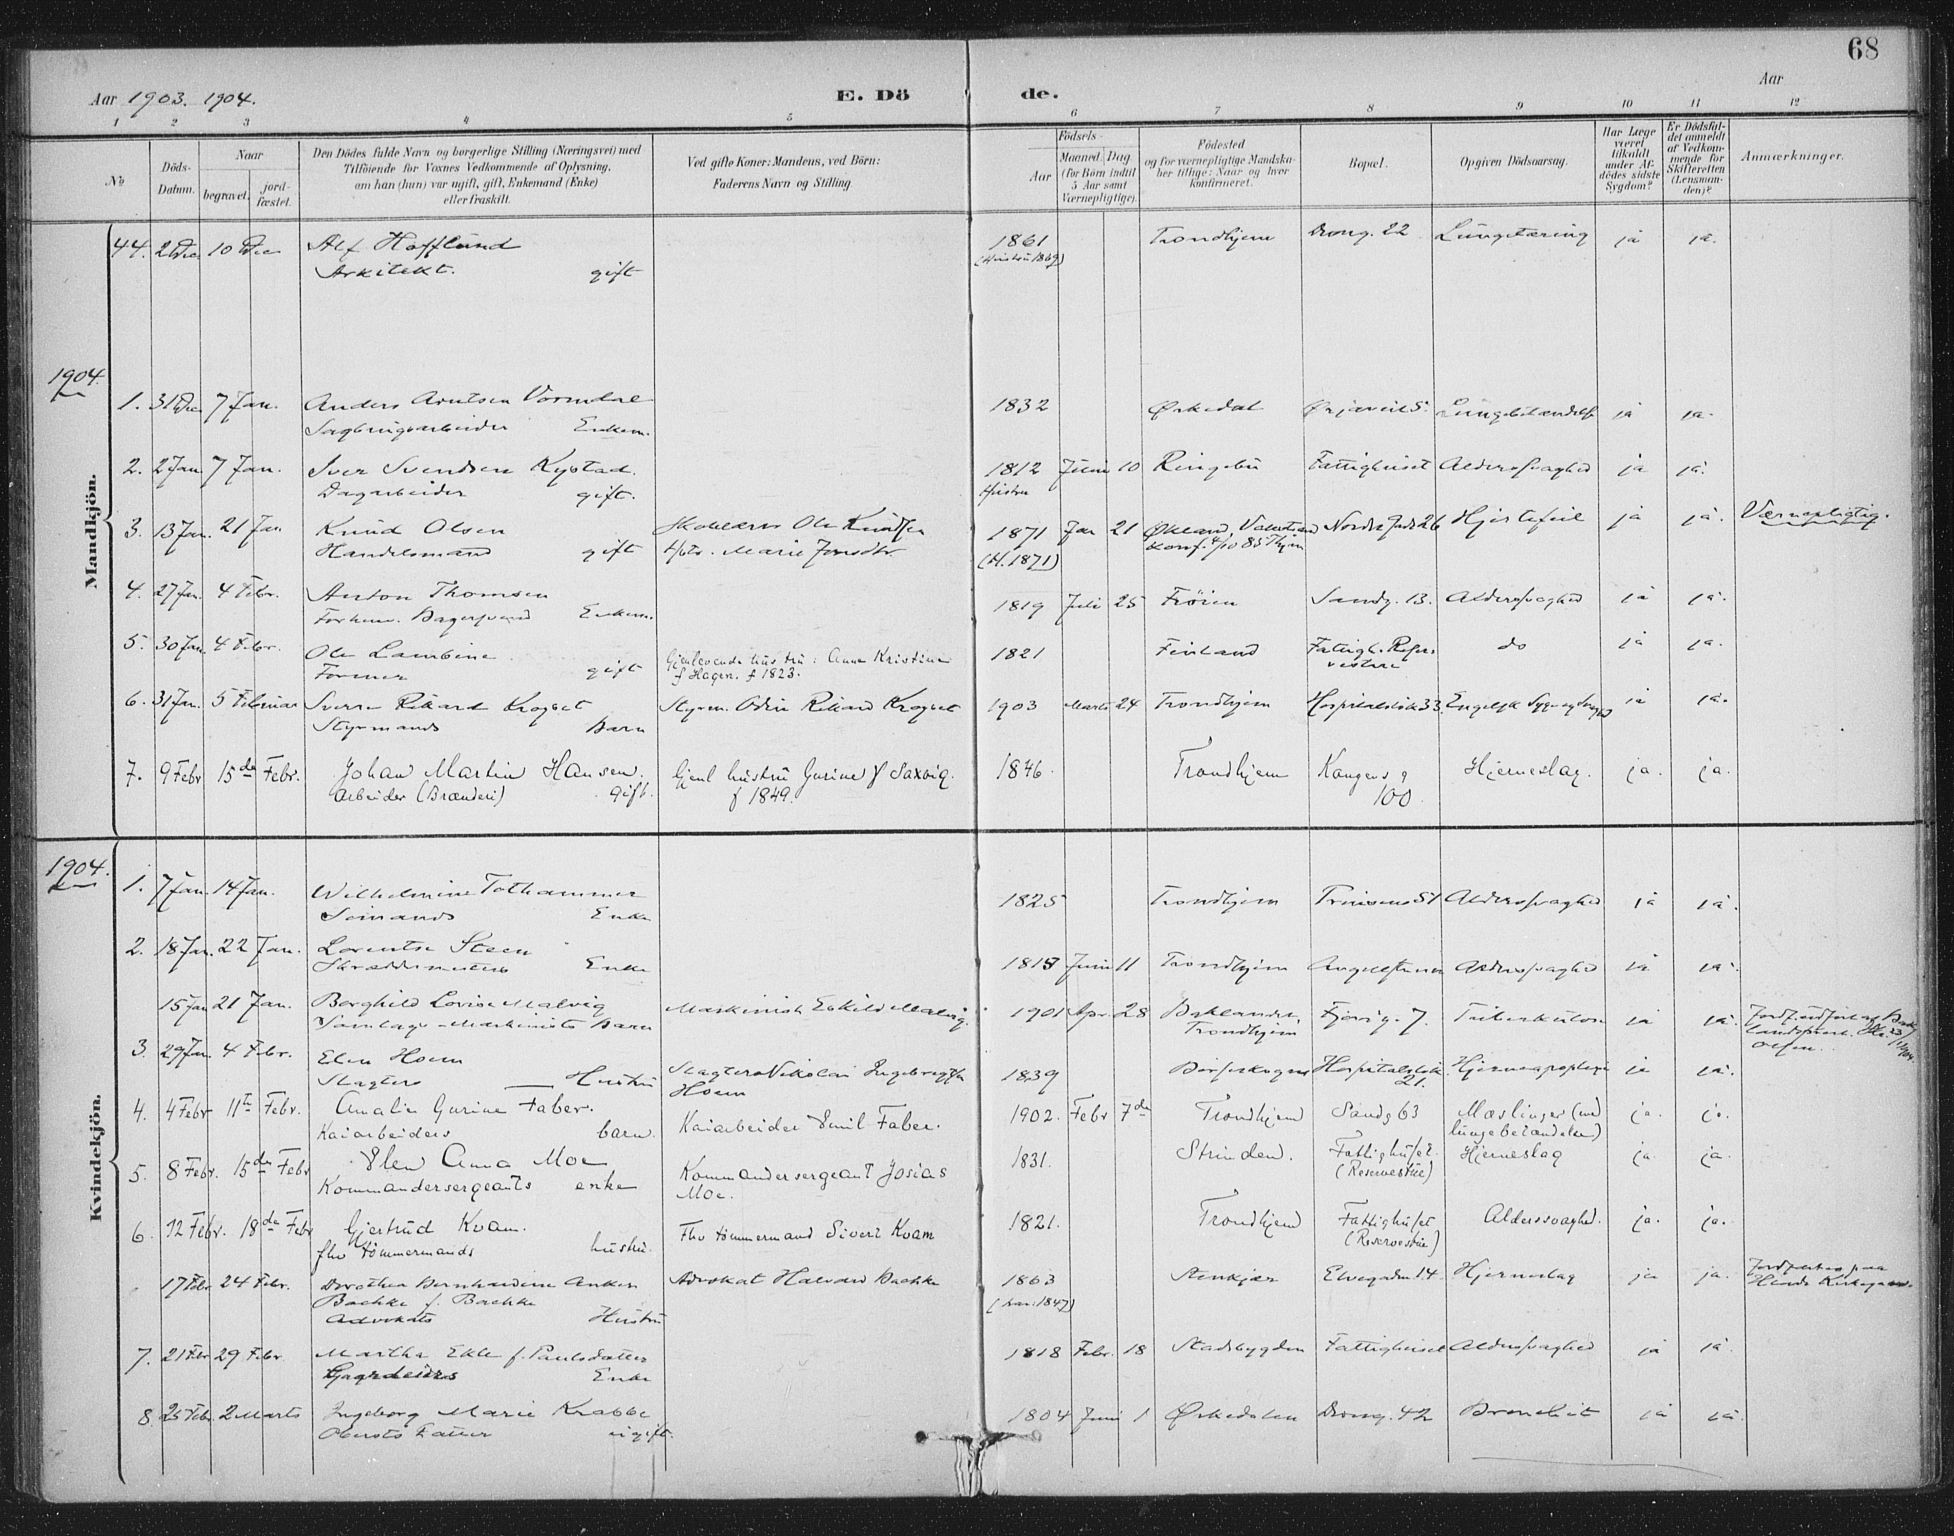 68
Aar 1903. 1904.
E. Dö de.
Aar
1 2 3 4 5 6 7 8 9 10 11 12
No
Döds-Datum.
Naar
begravet.
jord-fæstet.
Den Dödes fulde Navn og borgerlige Stilling (Næringsvei) med
Tilföiende for Voxnes Vedkommende af Oplysning,
om han (hun) var ugift, gift, Enkemand (Enke)
eller fraskilt.
Ved gifte Koner: Mandens, ved Börn:
Faderens Navn og Stilling.
Födsels-
Aar
Maaned. Dag.
(for Börn indtil
5 Aar samt
Værnepligtige).
Födested
og for værnepligtige Mandska-
ber tillige: Naar og hvor
konfirmeret.
Bopæl.
Opgiven Dödsaarsag.
Har Læge
været
tilkaldt
under Af-
dödes sidste
Sygdom?
Er Dödsfal-
det anmeldt
af Vedkom-
mende for
Skifteretten
(Lensman-
den)?
Anmærkninger.
Mandkjön.
44. 2 Dec 10 Dec Alf Hofflund 1861 Trondhjem Drong. 22 Lungetæring ja ja.
Arkitekt. gift (Hustru 1869)
1904.
1. 31 Dec 7 Jan. Anders Arntsen Vormdal 1832 Ørkedal ja ja.
Sagbrugsarbeider Enkem.
2. 2 Jan. 7 Jan. Iver Svendsen Kystad. 1812 Juni 10 Ringebu Fattighuset Alderssvaghed ja ja.
Dagarbeider gift. Hustru
3. 13 Jan. 21 Jan Knud Olsen Ole Knudsen 1871 Jan 21 Nordre gade 26 Hjertefeil ja ja. Værnepligtig.
Handelsmand gift Marie Jonsdtr. (H. 1871) konf. 4/10 85 Thjem
4. 27 Jan. 4 Febr. Anton Thomsen 1819 Juli 25 Frøien Sandg. 13. Alderssvaghed ja ja.
Forhenv. Bagersvend Enkem.
5. 30 Jan. 4 Febr. Ole Lambine Gjenlevende hustru: Anne Kristine 1821 Finland Fattigh. Reser- do ja ja.
Former gift f Hagen. f 1823. vestue
6. 31 Jan. 5 Februar Sverre Rikard Krogset Styrm. Odin Rikard Krogset 1903 Marts 24 Trondhjem Hospitalsløk 33. Engelsk Syge ja ja.
Styrmands Barn
7. 9 Febr 15de Febr. Johan Martin Hansen. Gjenl hustru Gurine f Saxvig. 1846. Trondhjem Kongens g Hjerneslag. ja. ja.
Arbeider (Brænderi) gift. f 1849. 100.
Kvindekjön.
1904.
1. 7 Jan. 14 Jan. Wilhelmine Tothammer 1825 Trondhjem Prinsens 51 Alderssvaghed ja ja.
Sømands Enke
2. 18 Jan. 22 Jan. Lorentse Steen Juni 11 Trondhjem Alderssvaghed ja ja.
Skræddermesters Enke
15 Jan 21 Jan. Borghild Lovise Malvig Maskinist Eskild Malvig. 1901 Apr. 28 Baklandet, Fjærg. 7. Tuberkulose ja ja.
Maskinists Barn Trondhjem
3. 29 Jan. 4 Febr. Elen Hoem Slagter Nikolai Ingebrigtsn 1839 Børseskogn Hospitalsløk Hjerneapoplexi ja ja.
Slagters Hustru Hoem 21.
4. 4 Febr 11te Febr. Amalie Gurine Faber. Kaiarbeider Emil Faber. 1902. Febr 7de Trondhjem Sandg 63 Mæslinger (med ja. ja.
Kaiarbeiders barn. lungebetændelse)
5. 8 Febr. 15de Febr Elen Anna Moe Kommandersergeant Josias 1831. Strinden. Fattighuset. Hjerneslag ja. ja.
Kommandersergeants enke Moe. (Reservestue)
6. 12 Febr. 18de Febr Gjertrud Kvam. Fhv tømmermand Sivert Kvam 1821. Trondhjem Fattighuset Alderssvaghed. ja. ja.
fhv tømmermands hustru. (Reservestue)
17 Febr 24 Febr. Dorothea Bernhardine Anker Advokat Halvard Bachke 1863 Stenkjær Elvegaden 14. Hjerneslag ja ja. Jordfæstes paa
Bachke f. Bachke (Man: 1847)
Advokats Hustru
7. 21 Febr 29 Febr. Martha Ekle f. Paulsdatter 1818 Febr. 18 Stadsbygden Fattighuset Alderssvaghed ja ja.
Enke
8. 25 Febr. 2 Marts Ingeborg Marie Krabbe 1804 Juni 1 Ørkedalen Drong. 42 Bronchit ja ja.
Obersts Datter ugift.